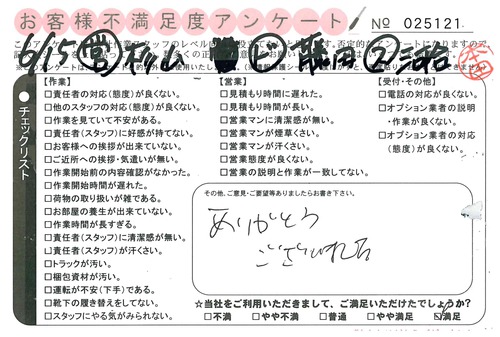 お客様不満足度アンケート
№ 025121
チェックリスト
【作業】
□責任者の対応(態度)が良くない。
□他のスタッフの対応(態度)が良くない。
□作業を見ていて不安がある。
□責任者(スタッフ)に好感が持てない。
□お客様への挨拶が出来ていない。
□ご近所への挨拶・気遣いが無い。
□作業開始前の内容確認がなかった。
□作業開始時間が遅れた。
□荷物の取り扱いが雑である。
□お部屋の養生が出来ていない。
□作業時間が長すぎる。
□責任者(スタッフ)に清潔感が無い。
□責任者(スタッフ)が汗くさい。
□トラックが汚い。
□梱包資材が汚い。
□運転が不安(下手)である。
□靴下の履き替えをしてない。
□スタッフにやる気がみられない。
【営業】
□見積もり時間に遅れた。
□見積もり時間が長い。
□営業マンに清潔感が無い。
□営業マンが煙草くさい。
□営業マンが汗くさい。
□営業態度が良くない。
□営業の説明と作業が一致してない。
【受付・その他】
□電話の対応が良くない。
□オプション業者の説明
・作業が良くない。
□オプション業者の対応
(態度)が良くない。
その他、ご意見・ご要望等ありましたらお書き下さい。
ありがとう
☆当社をご利用いただきまして、ご満足いただけたでしょうか?
□不満 □やや不満 □普通 □やや満足 ☑満足